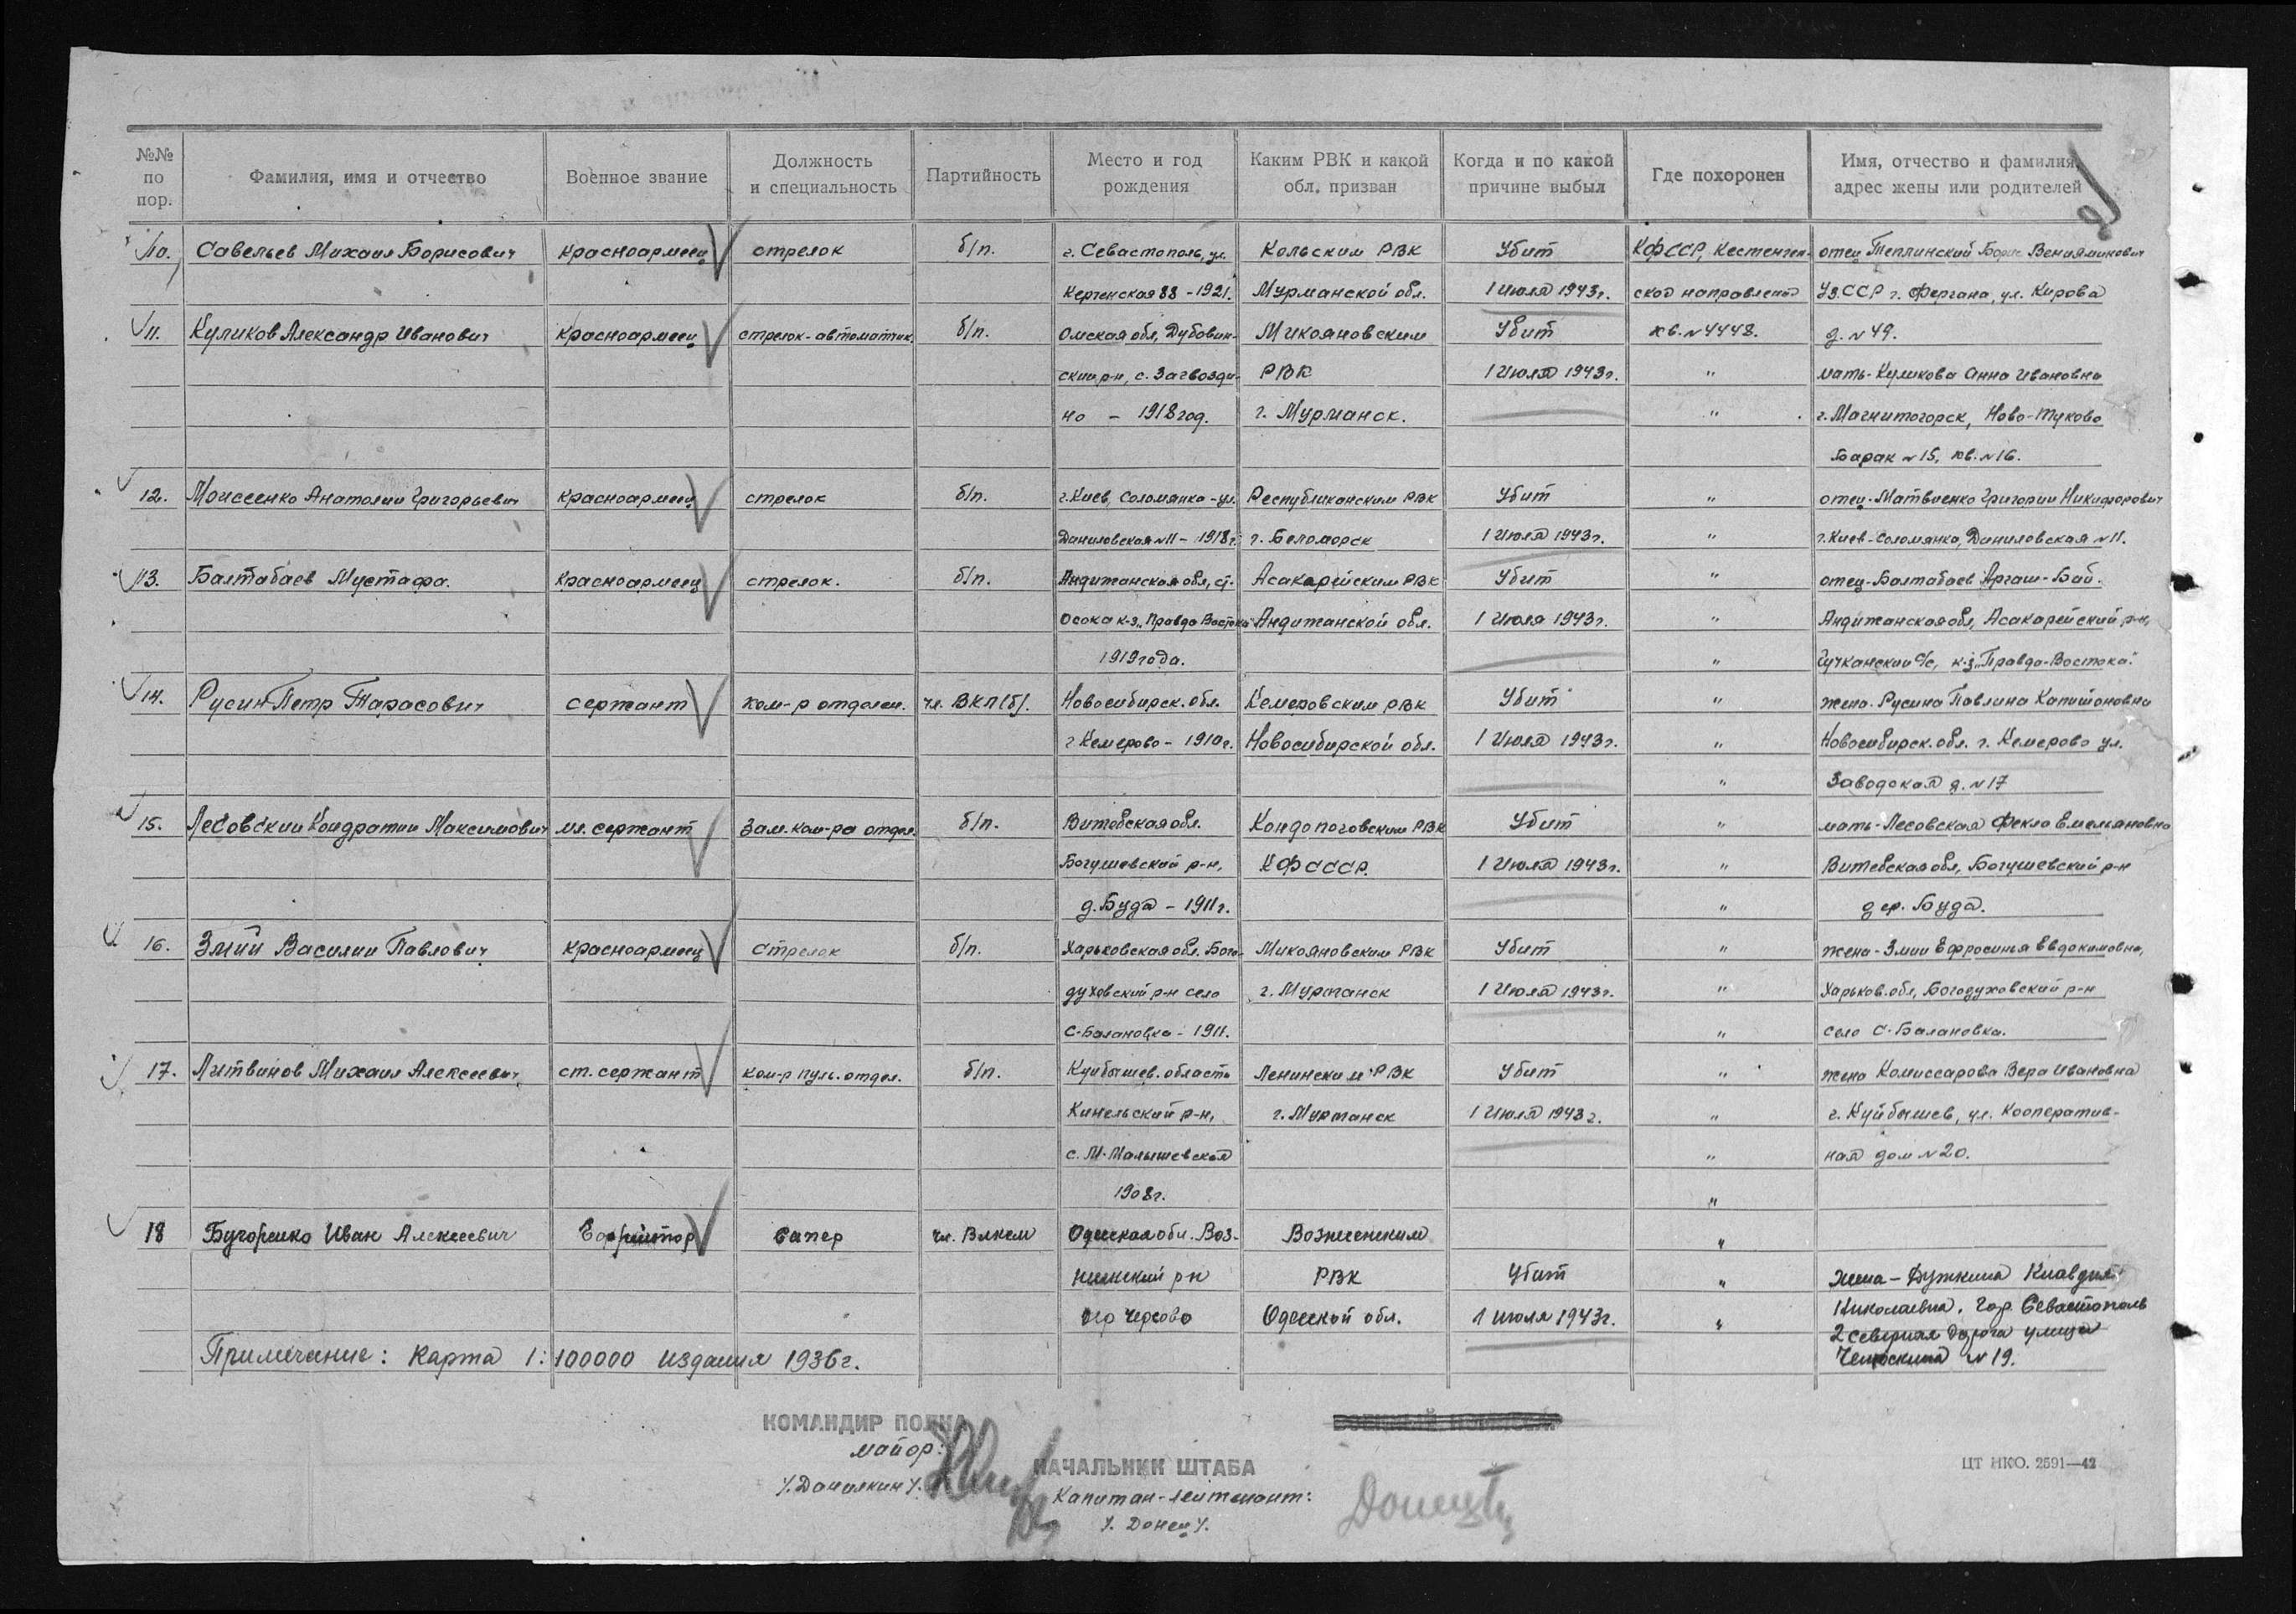 №№ по пор.
Фамилия, имя и отчество
Военное звание
Должность и специальность
Партийность
Место и год рождения
Каким РВК и какой обл. призван
Когда и по какой причине выбыл
Где похоронен
Имя, отчество и фамилия, адрес жены или родителей
10. Савельев Михаил Борисович красноармеец стрелок б/п. г. Севастополь, ул. Кольским РВК Убит КФССР, Кестенген- отец Теплинский Борис Вениаминович
Керченская 88 - 1921. Мурманской обл. 1 Июля 1943г. ское направление Уз.ССР г. Фергана, ул. Кирова
11. Куликов Александр Иванович красноармеец стрелок-автоматчик. б/п. Омская обл, Дубовин- Микояновским Убит кв. №4448. д. №49.
ский р-н, с. Загвозди- РВК 1 Июля 1943г. " мать-Куликова Анна Ивановна
но - 1918 год. г. Мурманск. " г. Магнитогорск, Ново-Туково
Барак №15, кв. №16.
12. Моисеенко Анатолий Григорьевич красноармеец стрелок б/п. г. Киев, Соломянка-ул. Республиканским РВК Убит " отец-Матвиенко Григорий Никифорович
Даниловская №11 - 1918г. г. Беломорск 1 Июля 1943г. " г. Киев-Соломянка, Даниловская №11.
13. Балтабаев Мустафа. красноармеец стрелок. б/п. Андижанская обл, ст. Асакарейским РВК Убит " отец-Балтабаев Аргаш-Бай.
Осока к-з „Правда Востока" Андижанской обл. 1 Июля 1943г. " Андижанская обл, Асакарейский р-н,
1919 года. " с/с, к-з „Правда-Востока".
14. Русин Петр Тарасович сержант ком-р отделен. чл. ВКП(б). Новосибирск. обл. Кемеровским РВК Убит " жена-Русина Павлина Капитоновна
г. Кемерово - 1910г. Новосибирской обл. 1 Июля 1943г. " Новосибирск. обл. г. Кемерово ул.
" Заводская д. №17
15. Лесовский Кондратий Максимович мл. сержант Зам. ком-ра отдел. б/п. Витебская обл. Кондопоговским РВК Убит " мать-Лесовская Фекла Емельяновна
Богушевский р-н, КФССР. 1 Июля 1943г. " Витебская обл, Богушевский р-н
д. Буда - 1911г. " дер. Буда.
16. Змий Василий Павлович красноармеец стрелок б/п. Харьковская обл. Бого- Микояновским РВК Убит " жена-Змий Ефросинья Евдокимовна,
духовский р-н село г. Мурманск 1 Июля 1943г. " Харьков. обл, Богодуховский р-н
С-Балановка - 1911. " село С-Балановка.
17. Литвинов Михаил Алексеевич ст. сержант ком-р пуль. отдел. б/п. Куйбышев. область Ленинским РВК Убит " жена Комиссарова Вера Ивановна
Кинельский р-н, г. Мурманск 1 Июля 1943г. " г. Куйбышев, ул. Кооператив-
с. М-Малышевская " ная дом №20.
1908г. "
18 Бугоренко Иван Алексеевич Ефрейтор сапер чл. Влксм Одесская обл. Воз- Вознесенским "
несенский р-н РВК Убит " жена - Дужкина Клавдия
Одесской обл. 1 июля 1943г. " Николаевна, гор. Севастополь
2 северная дорога улица
Челюскина №19.
Примечание: Карта 1:100000 издания 1936г.
КОМАНДИР ПОЛКА
майор:
/Данилкин/.
ВОЕННЫЙ КОМИССАР
НАЧАЛЬНИК ШТАБА
Капитан-лейтенант:
/. Донец /.
Донец
ЦТ НКО. 2591—42